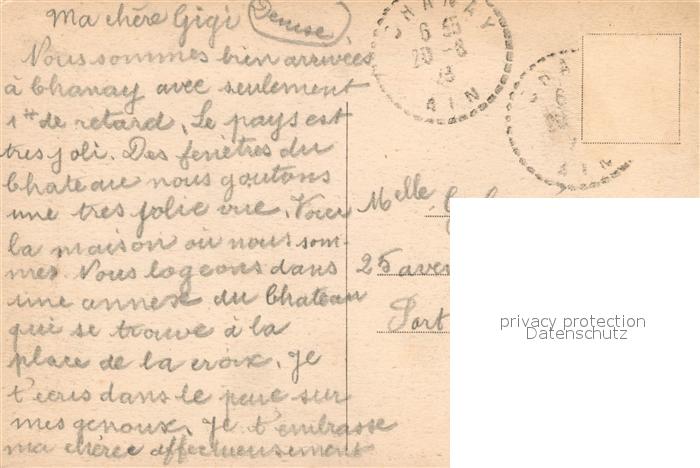 Ma chère Gigi Denise
Nous sommes bien arrivées
à Chanay avec seulement
1 H de retard. Le pays est
tres joli. Des fenêtres du
Chateau nous goutons
une tres jolie vue. Voici
la maison où nous som-
mes. Nous logeons dans
une annexe du Chateau
qui se trouve à la
place de la croix. Je
t'ecris dans le parc sur
mes genoux. Je t'embrasse
ma chérie affectueusement
CHANAY
6 35
20 -8
AIN
AIN
Melle
25 aven
Port
privacy protection
Datenschutz